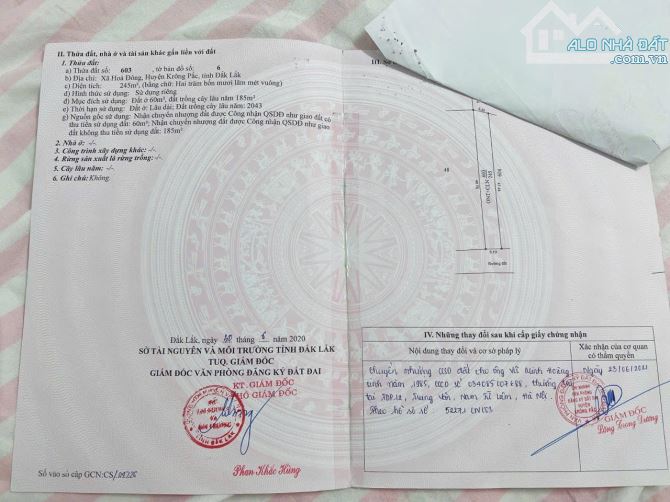 ALO NHÀ ĐẤT
II. Thửa đất, nhà ở và tài sản khác gắn liền với đất
1. Thửa đất:
a) Thửa đất số: 603 , tờ bản đồ số: 6
b) Địa chỉ: Xã Hoà Đông, Huyện Krông Pắc, tỉnh Đắk Lắk
c) Diện tích: 245m², (bằng chữ: Hai trăm bốn mươi lăm mét vuông)
d) Hình thức sử dụng: Sử dụng riêng
đ) Mục đích sử dụng: Đất ở 60m², đất trồng cây lâu năm 185m²
e) Thời hạn sử dụng: Đất ở: Lâu dài; Đất trồng cây lâu năm: 2043
g) Nguồn gốc sử dụng: Nhận chuyển nhượng đất được Công nhận QSDĐ như giao đất có
thu tiền sử dụng đất: 60m²; Nhận chuyển nhượng đất được Công nhận QSDĐ như giao
đất không thu tiền sử dụng đất: 185m²
2. Nhà ở: -/-
3. Công trình xây dựng khác: -/-
4. Rừng sản xuất là rừng trồng: -/-
5. Cây lâu năm: -/-
6. Ghi chú: Không.
III. Sơ
48
Đường đất
Đắk Lắk, ngày tháng 6 năm 2020
SỞ TÀI NGUYÊN VÀ MÔI TRƯỜNG TỈNH ĐẮK LẮK
TUQ. GIÁM ĐỐC
GIÁM ĐỐC VĂN PHÒNG ĐĂNG KÝ ĐẤT ĐAI
KT. GIÁM ĐỐC
PHÓ GIÁM ĐỐC
Phan Khắc Hùng
Số vào sổ cấp GCN:CS/
IV. Những thay đổi sau khi cấp giấy chứng nhận
Nội dung thay đổi và cơ sở pháp lý
Xác nhận của cơ quan
có thẩm quyền
Chuyển nhượng QSD đất cho ông Vũ Minh Hoàng,
sinh năm 1985, CCCD số 034085007688, thường trú
tại Trung Văn, Nam Từ Liêm, Hà Nội.
Theo hồ sơ số
Ngày 23/06/2021
GIÁM ĐỐC
Đường